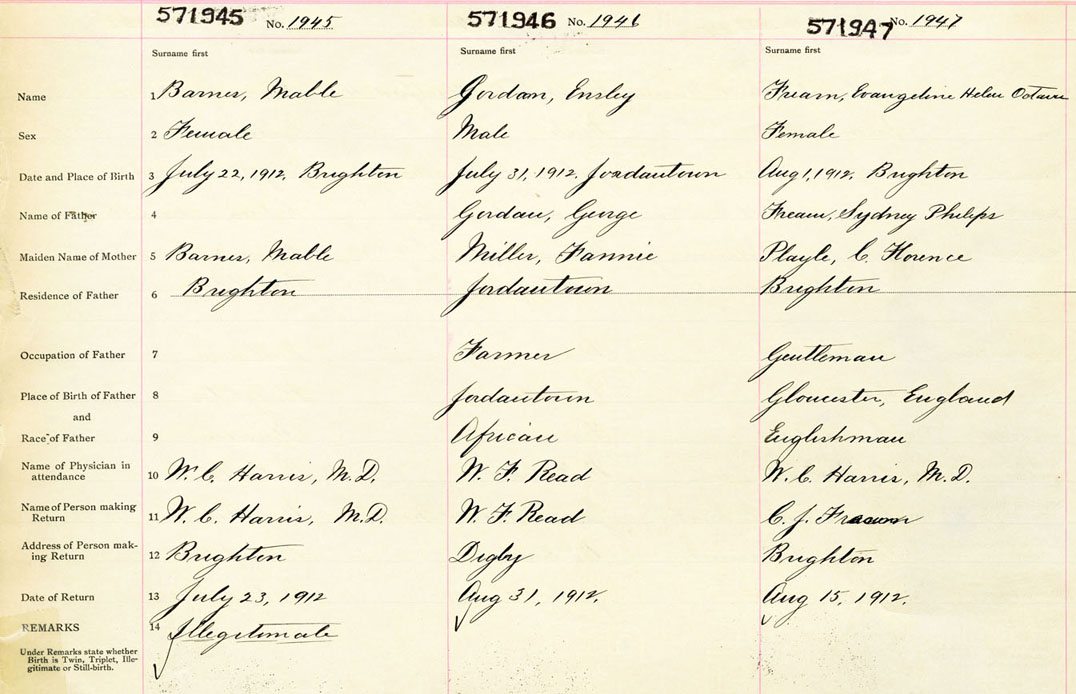 571945 No. 1945 571946 No. 1946 571947 No. 1947
Surname first Surname first Surname first
Name 1 Barnes, Mable Gordan, Ensley Fream, Evangeline Helen
Sex 2 Female Male Female
Date and Place of Birth 3 July 22, 1912, Brighton July 31, 1912. Jordantown Aug 1, 1912, Brighton
Name of Father 4 Gordan, George Fream, Sydney Philips
Maiden Name of Mother 5 Barnes, Mable Miller, Fannie Playle, C. Florence
Residence of Father 6 Brighton Jordantown Brighton
Occupation of Father 7 Farmer Gentleman
Place of Birth of Father 8 Jordantown Gloucester, England
and
Race of Father 9 African Englishman
Name of Physician in
attendance 10 W. C. Harris, M.D. W. F. Read W. C. Harris, M.D.
Name of Person making
Return 11 W. C. Harris, M.D. W. F. Read C. J.
Address of Person mak-
ing Return 12 Brighton Digby Brighton
Date of Return 13 July 23, 1912 Aug 31, 1912. Aug 15, 1912.
REMARKS 14 Illegitimate
Under Remarks state whether
Birth is Twin, Triplet, Ille-
gitimate or Still-birth.